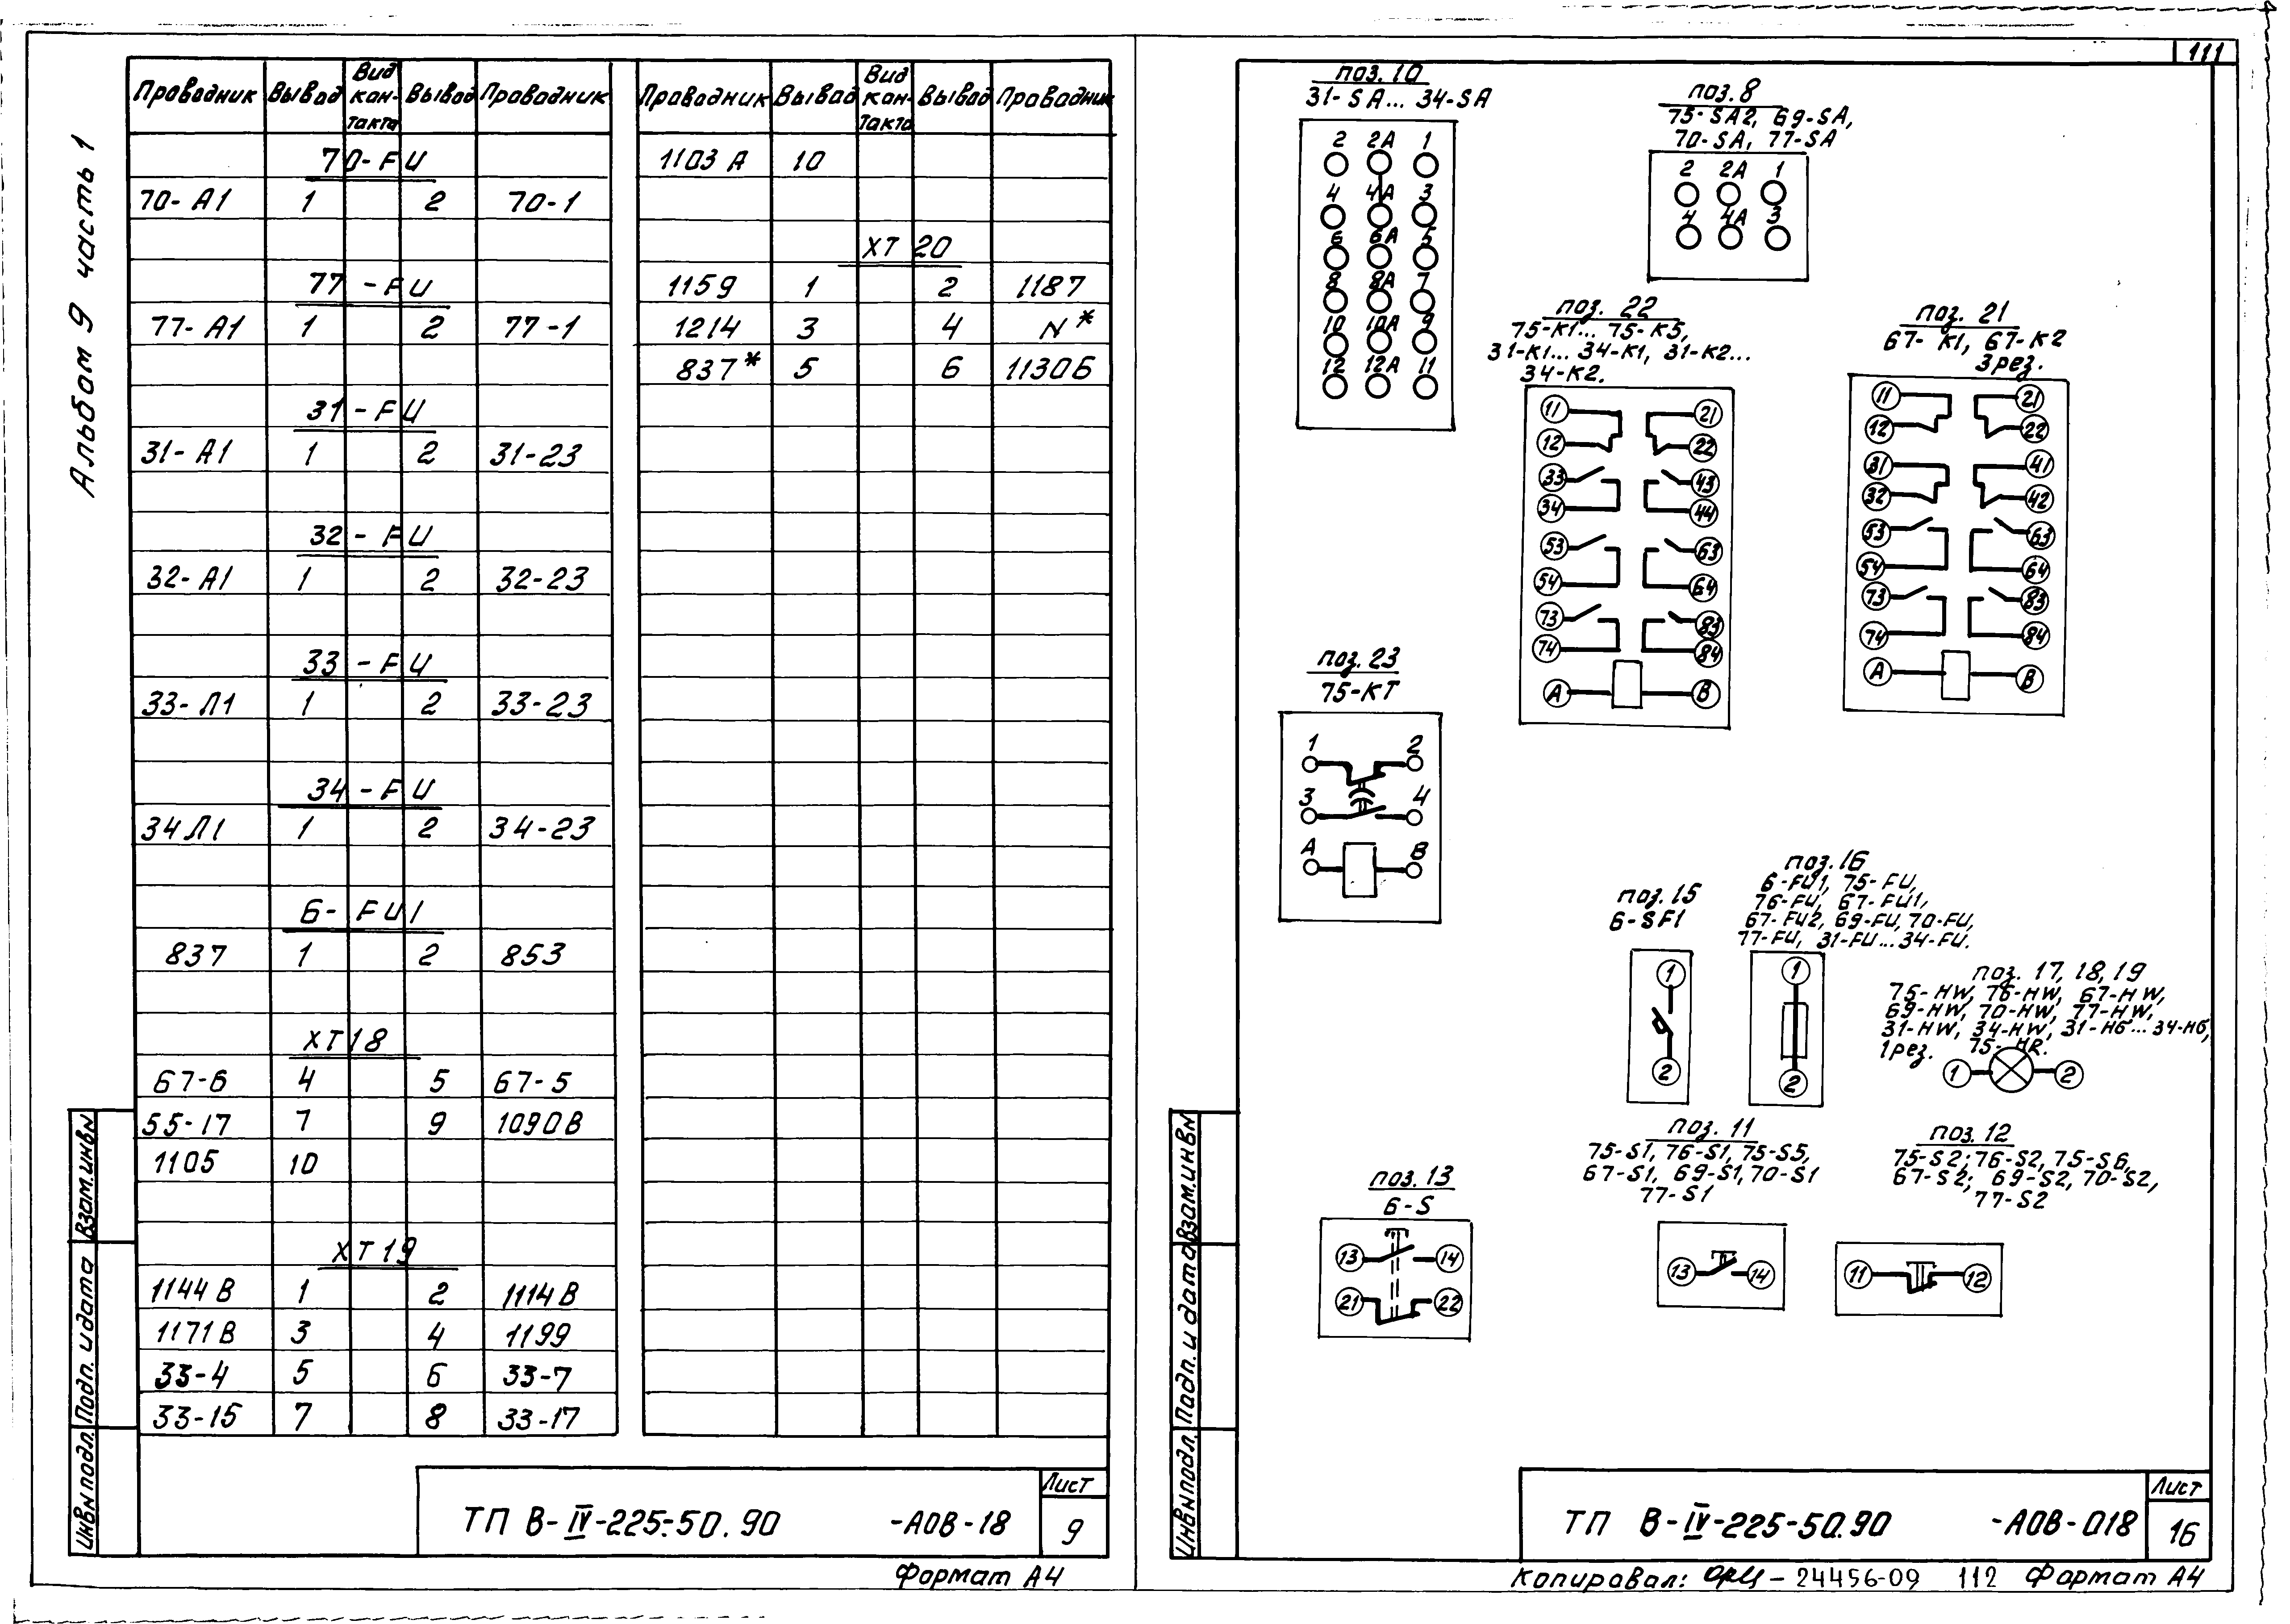 Альбом 9 часть 1
Проводник Вывод Вид кон-такта Вывод Проводник
70-FU
70-А1 1 2 70-1
77-FU
77-А1 1 2 77-1
31-FU
31-А1 1 2 31-23
32-FU
32-А1 1 2 32-23
33-FU
33-Л1 1 2 33-23
34-FU
34Л1 1 2 34-23
6-FU1
837 1 2 853
ХТ18
67-6 4 5 67-5
55-17 7 9 1090В
1105 10
ХТ19
1144В 1 2 1114В
1171В 3 4 1199
33-4 5 6 33-7
33-15 7 8 33-17
Проводник Вывод Вид кон-такта Вывод Проводник
1103А 10
ХТ20
1159 1 2 1187
1214 3 4 N*
837* 5 6 1130Б
Взам.инв№
Подп. и дата
Инв№подл.
ТП В-IV-225-50.90 -АОВ-18
Лист
9
Формат А4
111
поз. 10
31-SA... 34-SA
2 2А 1
4 4А 3
6 6А 5
8 8А 7
10 10А 9
12 12А 11
поз. 8
75-SA2, 69-SA,
70-SA, 77-SA
2 2А 1
4 4А 3
поз. 22
75-К1... 75-К5,
31-К1... 34-К1, 31-К2...
34-К2.
11 21
12 22
33 43
34 44
53 63
54 64
73 83
74 84
А В
поз. 21
67-К1, 67-К2
3 рез.
11 21
12 22
31 41
32 42
53 63
54 64
73 83
74 84
А В
поз. 23
75-КТ
1 2
3 4
А В
поз. 15
6-SF1
1
2
поз. 16
6-FU1, 75-FU,
76-FU, 67-FU1,
67-FU2, 69-FU, 70-FU,
77-FU, 31-FU... 34-FU.
1
2
поз. 17, 18, 19
75-HW, 76-HW, 67-HW,
69-HW, 70-HW, 77-HW,
31-HW, 34-HW, 31-HG... 34-HG,
1рез. 75-HR.
1 2
поз. 13
6-S
13 14
21 22
поз. 11
75-S1, 76-S1, 75-S5,
67-S1, 69-S1, 70-S1
77-S1
13 14
поз. 12
75-S2; 76-S2, 75-S6,
67-S2; 69-S2, 70-S2,
77-S2
11 12
Взам.инв№
Подп. и дата
Инв№подл.
ТП В-IV-225-50.90 -АОВ-018
Лист
16
Копировал: 24456-09 112 Формат А4